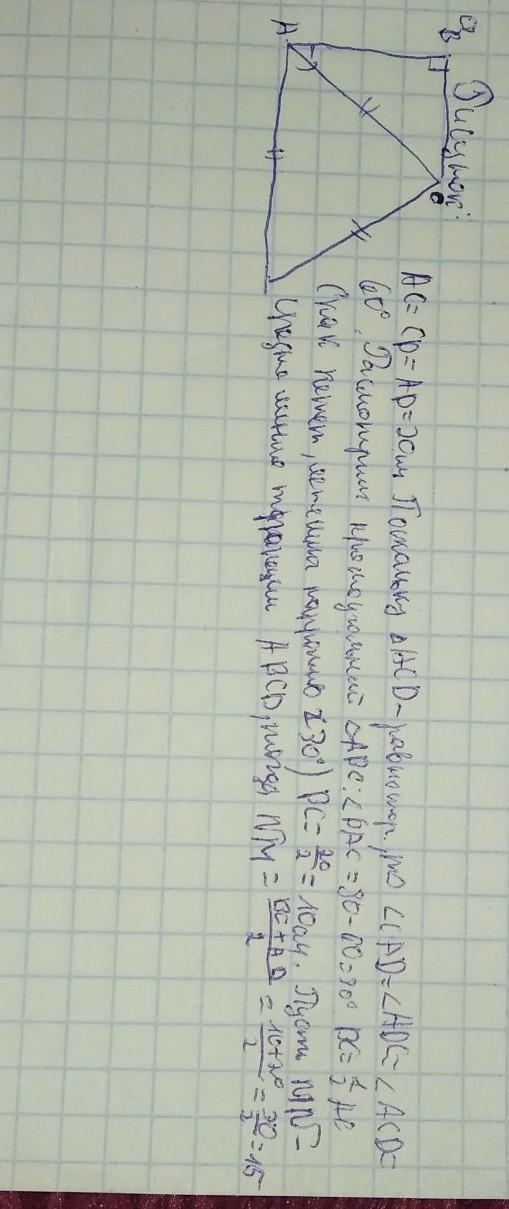 Рисунок:
В
С
А
AC = CD = AD = 20 см. Поскольку △ACD - равностор., то ∠CAD = ∠ADC = ∠ACD =
60°. Расмотрим прямоугольний △ABC: ∠BAC = 90 - 60 = 30° BC = 1/2 AC
(как катет, лежащий напротив ∠30°) BC = 20/2 = 10 см. Пусть MN -
средня линия трапеции ABCD, тогда NM = BC + AD / 2 = 10 + 20 / 2 = 30/2 = 15